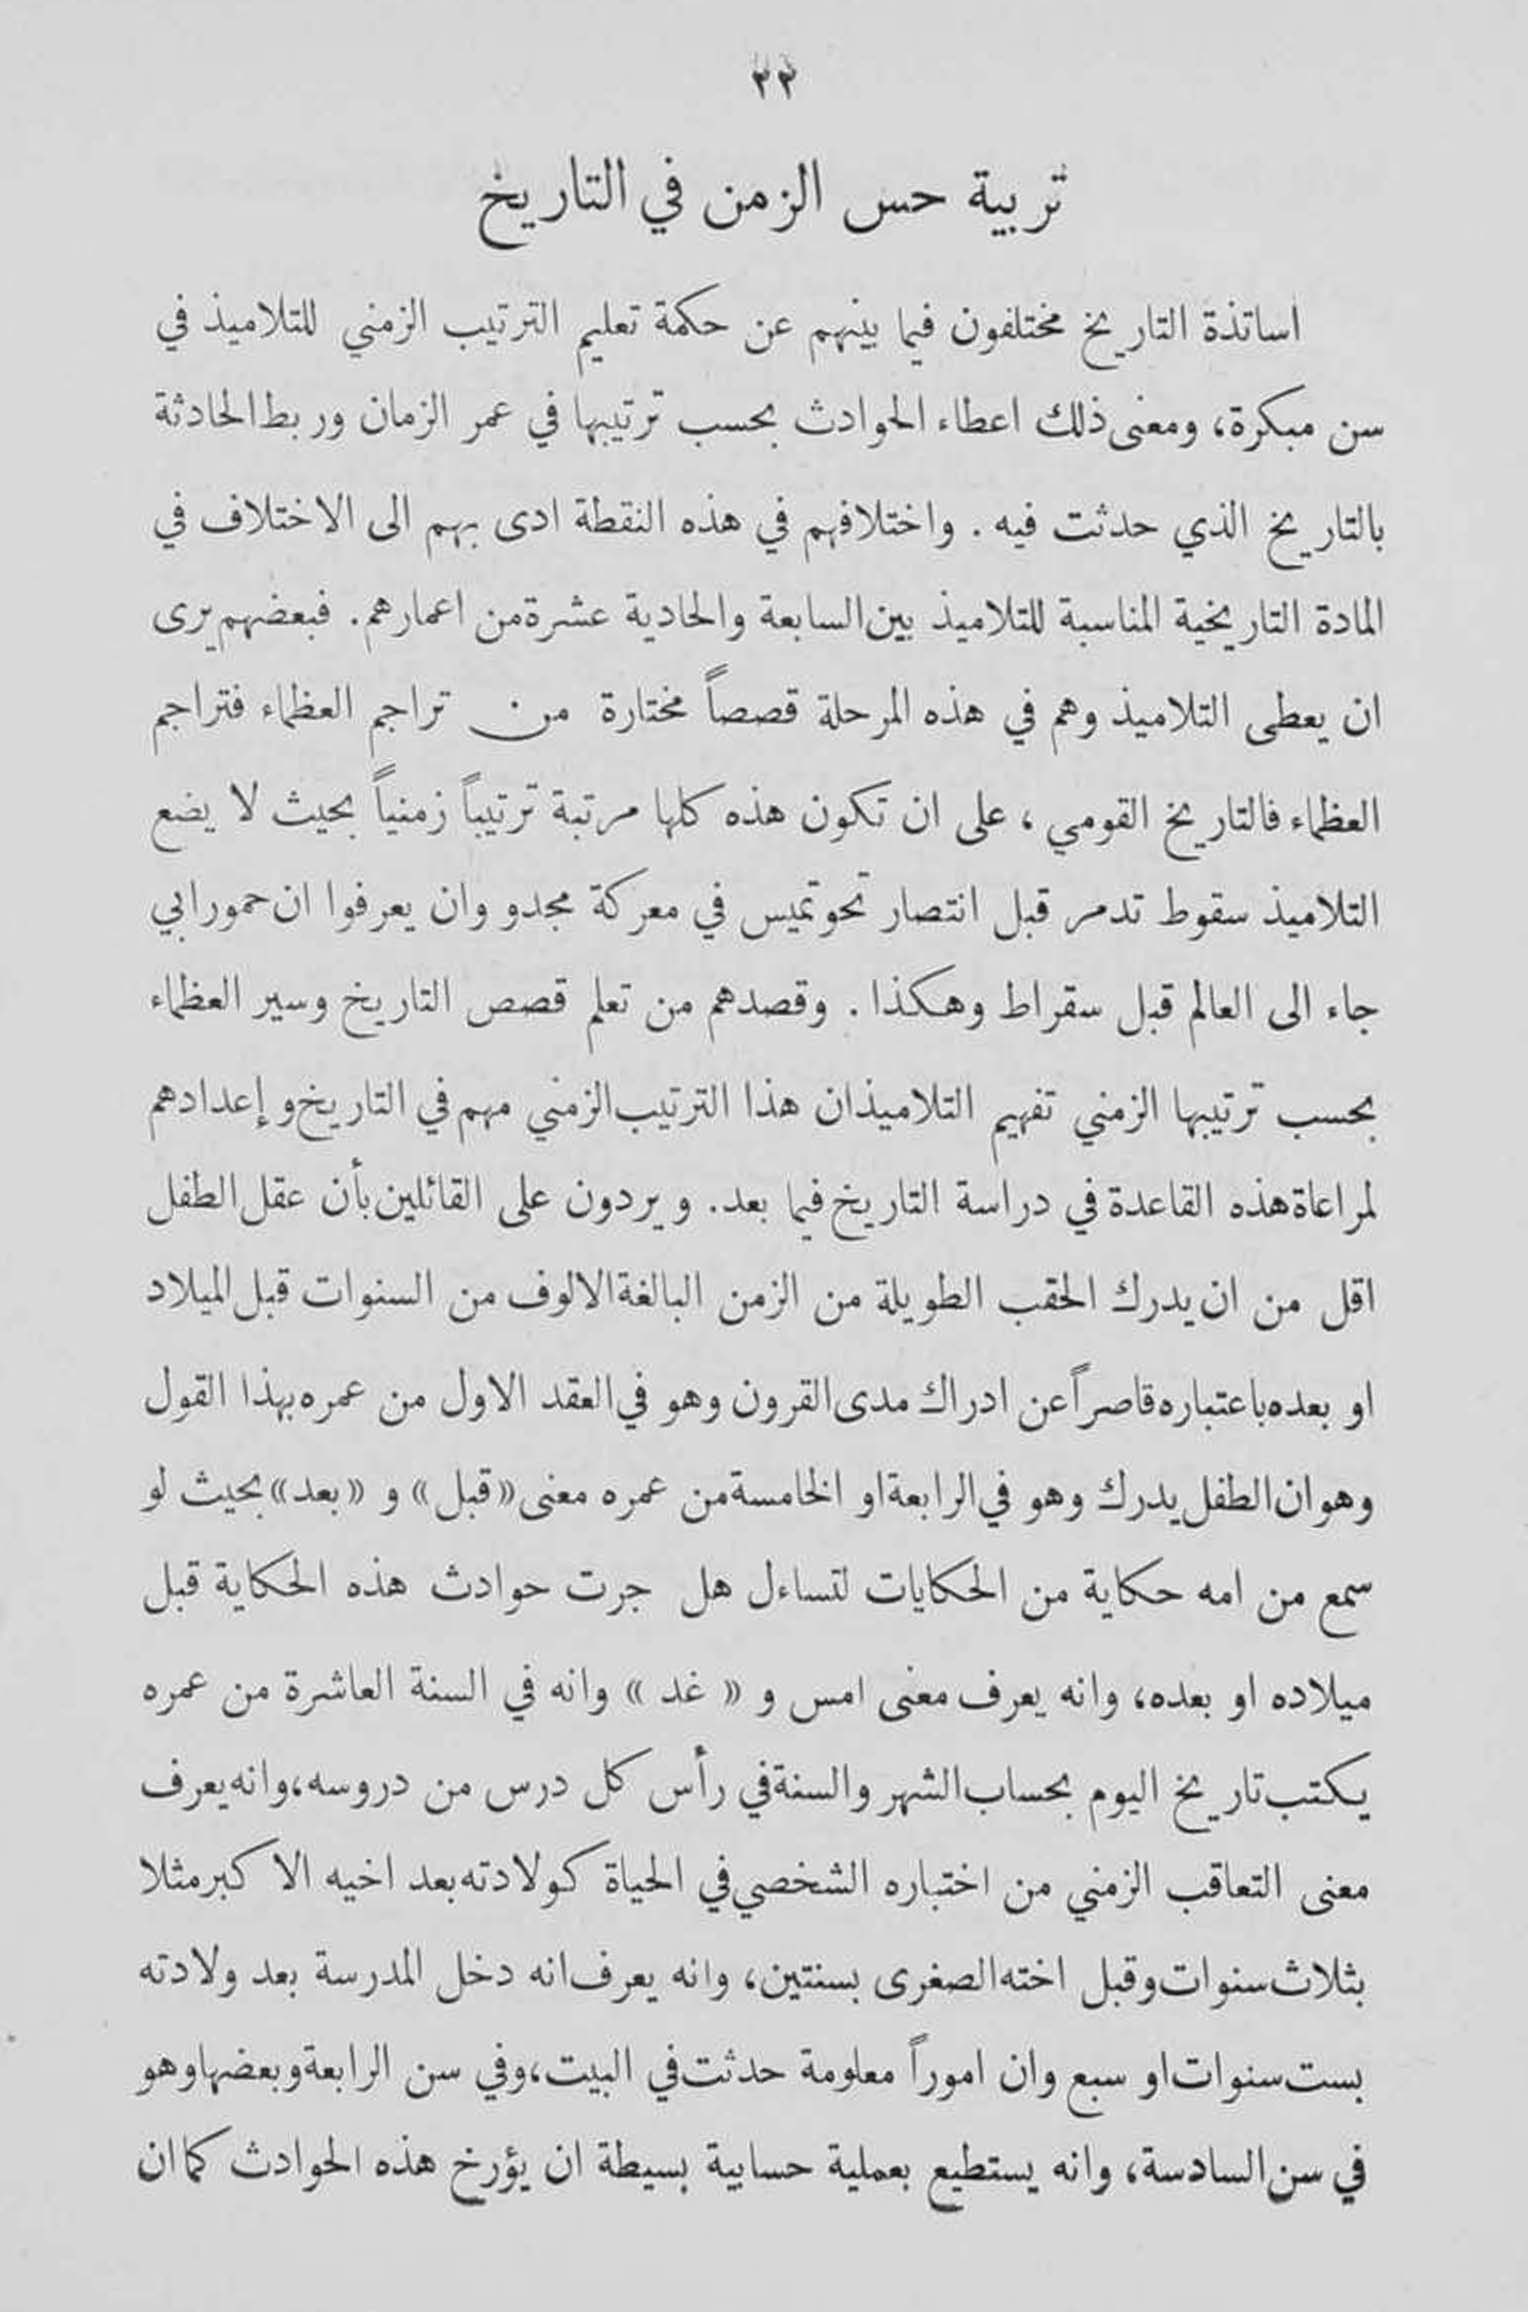 ٣٣
تربية حس الزمن في التاريخ
اساتذة التاريخ مختلفون فيما بينهم عن حكمة تعليم الترتيب الزمني للتلاميذ في
سن مبكرة، ومعنى ذلك اعطاء الحوادث بحسب ترتيبها في عمر الزمان وربط الحادثة
بالتاريخ الذي حدثت فيه . واختلافهم في هذه النقطة ادى بهم الى الاختلاف في
المادة التاريخية المناسبة للتلاميذ بين السابعة والحادية عشرة من اعمارهم. فبعضهم يرى
ان يعطى التلاميذ وهم في هذه المرحلة قصصاً مختارة من تراجم العظماء فتراجم
العظماء فالتاريخ القومي ، على ان تكون هذه كلها مرتبة ترتيباً زمنياً بحيث لا يضع
التلاميذ سقوط تدمر قبل انتصار تحوتميس في معركة مجدو وان يعرفوا ان حمورابي
جاء الى العالم قبل سقراط وهكذا . وقصدهم من تعلم قصص التاريخ وسير العظماء
بحسب ترتيبها الزمني تفهيم التلاميذ ان هذا الترتيب الزمني مهم في التاريخ وإعدادهم
لمراعاة هذه القاعدة في دراسة التاريخ فيما بعد. ويردون على القائلين بأن عقل الطفل
اقل من ان يدرك الحقب الطويلة من الزمن البالغة الالوف من السنوات قبل الميلاد
او بعده باعتباره قاصراً عن ادراك مدى القرون وهو في العقد الاول من عمره بهذا القول
وهو ان الطفل يدرك وهو في الرابعة او الخامسة من عمره معنى «قبل» و «بعد» بحيث لو
سمع من امه حكاية من الحكايات لتساءل هل جرت حوادث هذه الحكاية قبل
ميلاده او بعده، وانه يعرف معنى امس و « غد » وانه في السنة العاشرة من عمره
يكتب تاريخ اليوم بحساب الشهر والسنة في رأس كل درس من دروسه، وانه يعرف
معنى التعاقب الزمني من اختباره الشخصي في الحياة كولادته بعد اخيه الاكبر مثلا
بثلاث سنوات وقبل اخته الصغرى بسنتين، وانه يعرف انه دخل المدرسة بعد ولادته
بست سنوات او سبع وان اموراً معلومة حدثت في البيت، وفي سن الرابعة وبعضها وهو
في سن السادسة، وانه يستطيع بعملية حسابية بسيطة ان يؤرخ هذه الحوادث كما ان